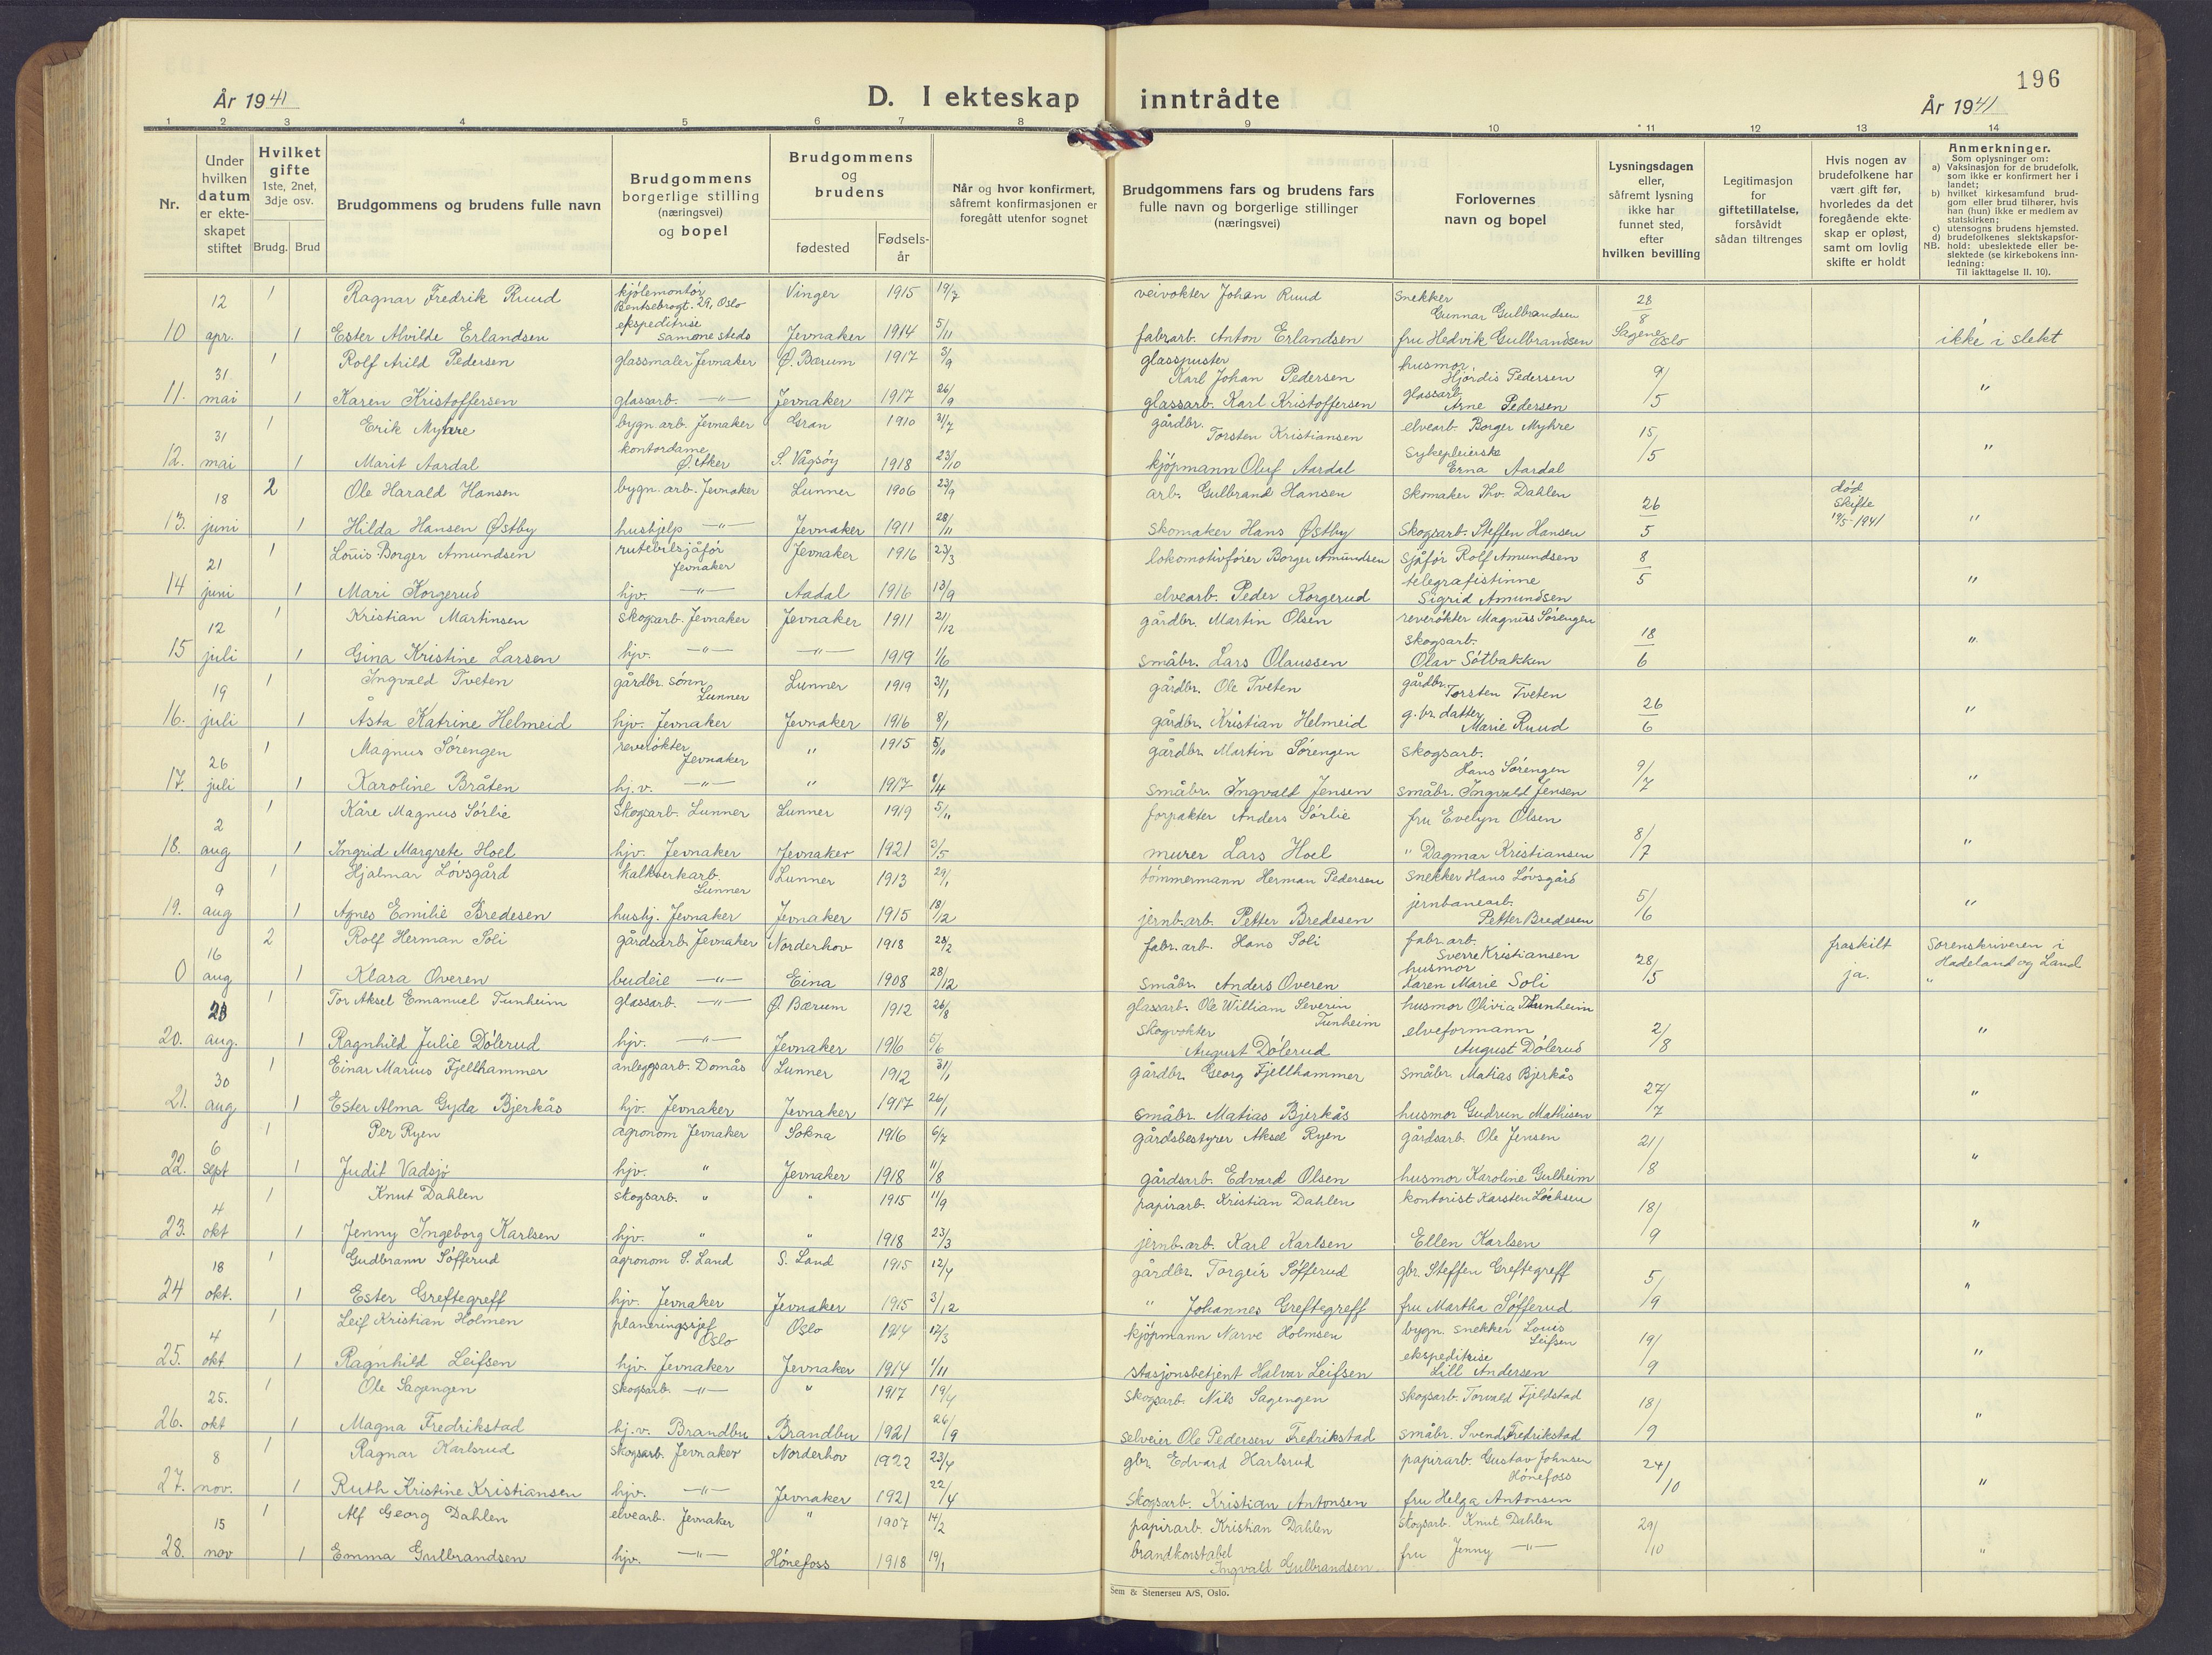 196
År 1941
D. I ekteskap inntrådte
År 1941
1 2 3 4 5 6 7 8 9 10 11 12 13 14
Nr.
Under hvilken datum er ekte-skapet stiftet
Hvilket gifte 1ste, 2net, 3dje osv.
Brudg. Brud
Brudgommens og brudens fulle navn
Brudgommens borgerlige stilling (næringsvei) og bopel
Brudgommens og brudens
fødested
Fødsels-år
Når og hvor konfirmert, såfremt konfirmasjonen er foregått utenfor sognet
Brudgommens fars og brudens fars fulle navn og borgerlige stillinger (næringsvei)
Forlovernes navn og bopel
Lysningsdagen eller, såfremt lysning ikke har funnet sted, efter hvilken bevilling
Legitimasjon for giftetillatelse, forsåvidt sådan tiltrenges
Hvis nogen av brudefolkene har vært gift før, hvorledes da det foregående ekte-skap er opløst, samt om lovlig skifte er holdt
Anmerkninger.
Som oplysninger om:
a) Vaksinasjon for de brudefolk, som ikke er konfirmert her i landet;
b) hvilket kirkesamfund brud-gom eller brud tilhører, hvis han (hun) ikke er medlem av statskirken;
c) utensogns brudens hjemsted.
d) brudefolkenes slektskapsfor-hold: ubeslektede eller be-slektede (se kirkebokens inn-ledning:
NB. Til iakttagelse II. 10).
12 1 Ragnar Fredrik Ruud kjølemontør Bentsebrogt. 29, Oslo Vinger 1915 19/7 veivokter Johan Ruud Snekker Gunnar Gulbrandsen 28/8
10 apr. 1 Ester Alvilde Erlandsen ekspeditrise samme steds Jevnaker 1914 5/11 fabrarb. Anton Erlandsen fru Hedvik Gulbrandsen Sagene Oslo ikke i slekt
31 1 Rolf Arild Pedersen glassmaler Jevnaker Ø. Bærum 1917 3/9 glasspuster Karl Johan Pedersen husmor Hjørdis Pedersen 9/5
11. mai 1 Karen Kristoffersen glassarb. —"— Jevnaker 1917 26/9 glassarb. Karl Kristoffersen glassarb. Arne Pedersen "
31 1 Erik Myhre bygn. arb. Jevnaker Gran 1910 31/7 gårdbr. Torsten Kristiansen elvearb. Borger Myhre 15/5
12. mai 1 Marit Aardal kontordame Ø. Aker S. Vågsøy 1918 23/10 kjøpmann Oluf Aardal Sykepleierske Erna Aardal "
18 2 Ole Harald Hansen bygn. arb. Jevnaker Lunner 1906 23/9 arb. Gulbrand Hansen Skomaker Thv. Dahlen 26/5 død skifte 19/5-1941
13. juni 1 Hilda Hansen Østby hushjelp —"— Jevnaker 1911 28/11 Skomaker Hans Østby Skogsarb. Steffen Hansen "
21 1 Louis Borger Amundsen rutebilsjåfør Jevnaker Jevnaker 1916 23/3 lokomotivfører Borger Amundsen Sjåfør Rolf Amundsen 8/5
14 juni 1 Mari Korgerud hjv. —"— Aadal 1916 13/9 elvearb. Peder Korgerud telegrafistinne Sigrid Amundsen "
12 1 Kristian Martinsen skogsarb. Jevnaker Jevnaker 1911 21/12 gårdbr. Martin Olsen reverøkter Magnus Sørengen 18/6
15 juli 1 Gina Kristine Larsen hjv. —"— —"— 1919 1/6 småbr. Lars Olaussen skogsarb. Olav Søtbakken "
19 1 Ingvald Tveten gårdbr. sønn Lunner Lunner 1919 31/1 gårdbr. Ole Tveten gårdbr. Torsten Tveten 26/6
16. juli 1 Åsta Katrine Helmeid hjv. Jevnaker Jevnaker 1916 8/1 gårdbr. Kristian Helmeid g. br. datter Marie Ruud "
26 1 Magnus Sørengen reverøkter Jevnaker " 1915 5/10 gårdbr. Martin Sørengen Skogsarb. Hans Sørengen 9/7
17. juli 1 Karoline Bråten hj. v. —"— " 1917 /4 småbr. Ingvald Jensen småbr. Ingvald Jensen "
2 1 Kåre Magnus Sørlie Skogsarb. Lunner Lunner 1919 5/11 forpakter Anders Sørlie fru Evelyn Olsen 8/7
18. aug 1 Ingrid Margrete Hoel hjv. Jevnaker Jevnaker 1921 3/5 murer Lars Hoel " Dagmar Kristiansen "
9 1 Hjalmar Løvsgård kalkverkarb. Lunner Lunner 1913 29/1 tømmermann Herman Pedersen Snekker Hans Løvsgård 5/6
19. aug 1 Agnes Emilie Bredesen hushj. Jevnaker Jevnaker 1915 18/12 jernb.arb. Petter Bredesen jernbanearb. Petter Bredesen "
16 2 Rolf Herman Soli gårdsarb. Jevnaker Norderhov 1918 28/2 fabr. arb. Hans Soli fabr. arb. Sverre Kristiansen 28/5 fraskilt Sorenskriveren i Hadeland og Land
0 aug 1 Klara Overen budeie —"— Eina 1908 28/12 småbr. Anders Overen husmor Karen Marie Soli ja. "
23 1 Tor Aksel Emanuel Tunheim glassarb. —"— Ø. Bærum 1912 26/8 glassarb. Ole William Severin Tunheim husmor Olivia Tunheim 2/8
20. aug. 1 Ragnhild Julie Dølerud hjv. —"— Jevnaker 1916 5/6 Skogvokter August Dølerud elveformann August Dølerud "
30 1 Einar Marius Fjellhammer anleggsarb. Domås Lunner 1912 31/1 gårdbr. Georg Fjellhammer Småbr. Matias Bjerkås 27/7
21. aug 1 Ester Alma Gyda Bjerkås hjv. Jevnaker Jevnaker 1917 26/1 småbr. Matias Bjerkås husmor Gudrun Mathisen "
6 1 Per Ryen agronom Jevnaker Sokna 1916 6/7 gårdsbestyrer Aksel Ryen gårdsarb. Ole Jensen 21/8
22. sept 1 Judit Vadsjø hjv. " Jevnaker 1918 11/8 gårdsarb. Edvard Olsen husmor Karoline Gulheim "
4 1 Knut Dahlen skogsarb. " " 1915 11/9 papirarb. Kristian Dahlen kontorist Karsten 18/9
23. okt 1 Jenny Ingeborg Karlsen hjv. " " 1918 23/3 jernb.arb. Karl Karlsen Ellen Karlsen "
18 1 Gudbrann Søfferud agronom S. Land S. Land 1915 12/4 gårdbr. Torgeir Søfferud gbr. Steffen Greftegreff 5/9
24 okt. 1 Ester Greftegreff hjv. Jevnaker Jevnaker 1915 3/12 " Johannes Greftegreff fru Martha Søfferud "
4 1 Leif Kristian Holmen planeringssjef Oslo Oslo 1914 12/3 kjøpmann Narve Holmsen bygn. snekker Louis Leifsen 19/9
25. okt 1 Ragnhild Leifsen hjv. Jevnaker Jevnaker 1914 1/11 stasjonsbetjent Halvar Leifsen ekspeditrise Lill Andersen "
25. 1 Ole Sagengen skogsarb. —"— " 1917 19/4 skogsarb. Nils Sagengen skogsarb. Torvald Fjeldstad 18/9
26. okt 1 Magna Fredrikstad hj. v. Brandbu Brandbu 1921 26/9 selveier Ole Pedersen Fredrikstad småbr. Svend Fredrikstad "
8 1 Ragnar Karlsrud skogsarb. Jevnaker Norderhov 1922 23/4 gbr. Edvard Karlsrud papirarb. Gustav Johnsen Hønefoss 24/10
27. nov. 1 Ruth Kristine Kristiansen hjv. —"— Jevnaker 1921 22/4 Skogsarb. Kristian Antonsen fru Helga Antonsen "
15 1 Alf Georg Dahlen elvearb. Jevnaker " 1907 14/2 papirarb. Kristian Dahlen skogsarb. Knut Dahlen 29/10
28. nov 1 Emma Gulbrandsen hjv. —"— Hønefoss 1918 19/1 brandkonstabel Ingvald Gulbrandsen fru Jenny —"— "
Sem & Stenersen A/S, Oslo.